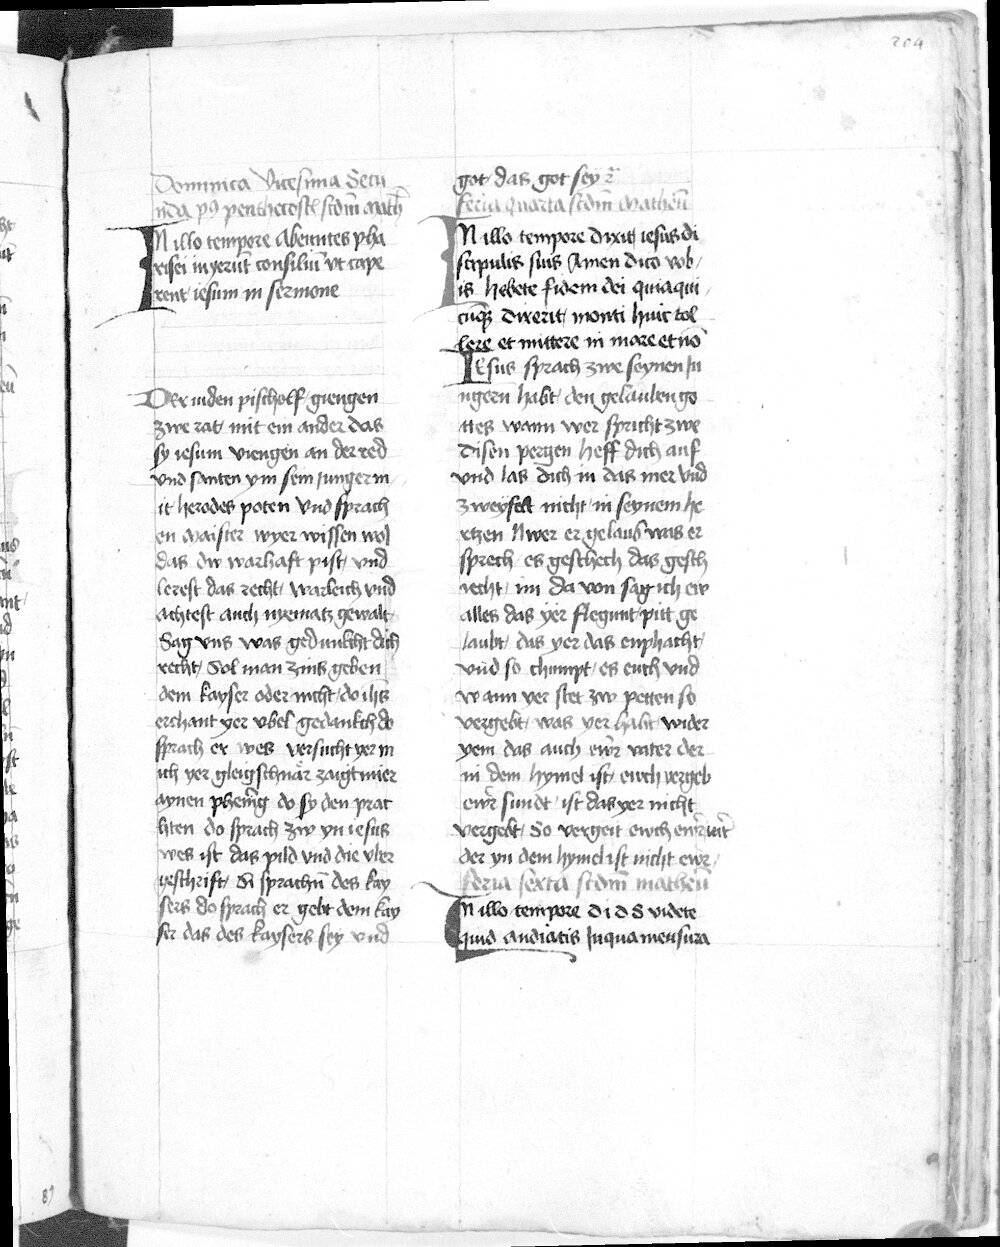 204
Dominica vicesima Secu
nda p9 penthecostē scdm̄ Math̄
IN illo tempore Abeuntes pha
risei inyerūt consiliū vt cape
rent iesum in sermone
Der iuden pischolf giengen
zwe rat mit ein ander das
sy iesum viengen an der red
vnd santen ym sein Jungerin
it herodes poten vnd sprach
en Maister wyer wissen wol
das dw warhaft pist vnd
lerest das recht warleich vnd
achtest auch nyematz gewalt
Sag vns was gedunkcht dich
recht Sol man zins geben
dem kayser oder nicht do ihūs
erchant yer vbel gedankch do
sprach er wes versucht yer m
ich yer gleigschnär zaigt mier
aynen phenīg do sy den prac
hten do sprach zw yn iesus
wes ist das pild vnd die vber
geschrift Si sprachn̄ des kay
sers do sprach er gebt dem kay
ser das des kaysers sey vnd
got das got sey
feria quarta scdm̄ Matheū
IN illo tempore dixit iesus di
scipulis suis Amen dico vob
is habete fidem dei quia qui
cūq3 dixerit monti huic tol
lere et mittere in mare et nō
Jesus sprach zwe seynen Ju
ngern habt den gelauben go
ttes wann wer spricht zwe
disen pergen heff dich auf
vnd las dich in das mer vnd
zweyfelt nicht in seynem he
rtzen Nwer er gelaub was er
sprech es geschech das gesch
iecht im da von sag ich ew
alles das yer flegunt pitt ge
laubt das yer das enphacht
vnd so chumpt es euch vnd
wann yer stet zw petten so
vergebt was yer habt wider
yem das auch ewr̄ vater der
in dem hymel ist ewch vergeb
ewr̄ sundt ist das yer nicht
vergebt So vergeit ewch ewr̄ vat̄
der yn dem hymel ist nicht ewr
feria sexta scdm̄ matheū
IN illo tempore d i d s videte
quid audiatis In qua mensura
89